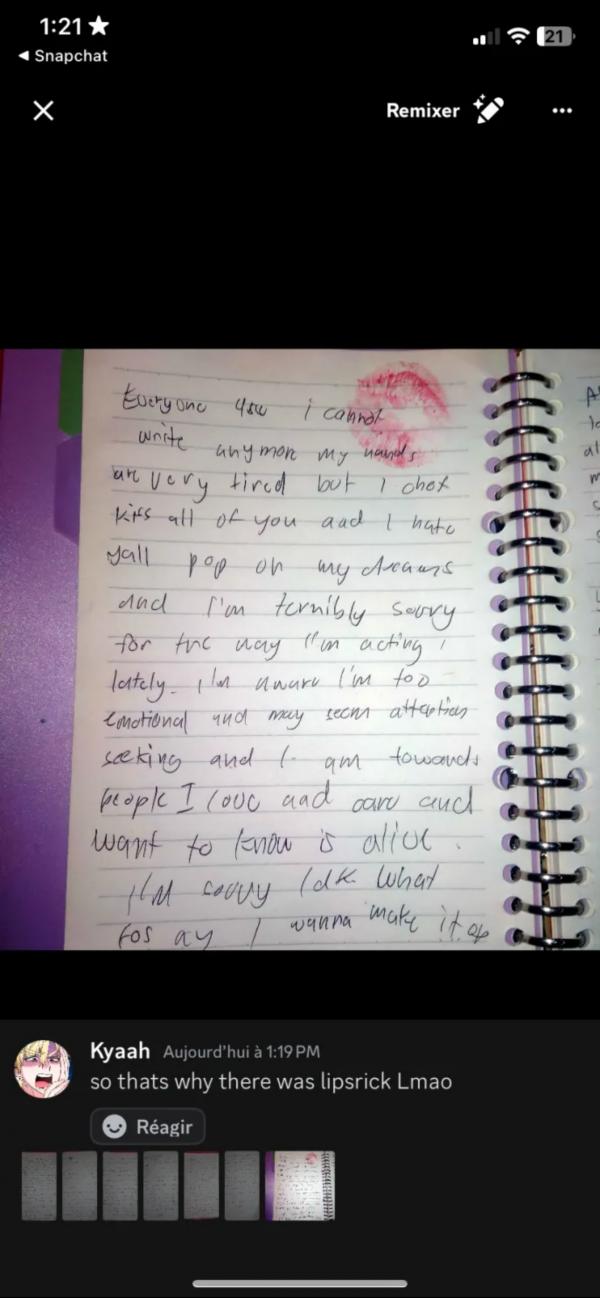 1:21
21
Snapchat
Remixer
Everyone i cannot
write anymore my hands
are very tired but I
kiss all of you and I hate
yall pop on my dreams
and I'm terribly sorry
for the way I'm acting
lately. I'm aware I'm too
emotional and may seem attention
seeking and I am towards
people I love and care and
want to know is alive.
I'm sorry Idk what
I wanna make it
Kyaah Aujourd'hui à 1:19 PM
so thats why there was lipsrick Lmao
Réagir